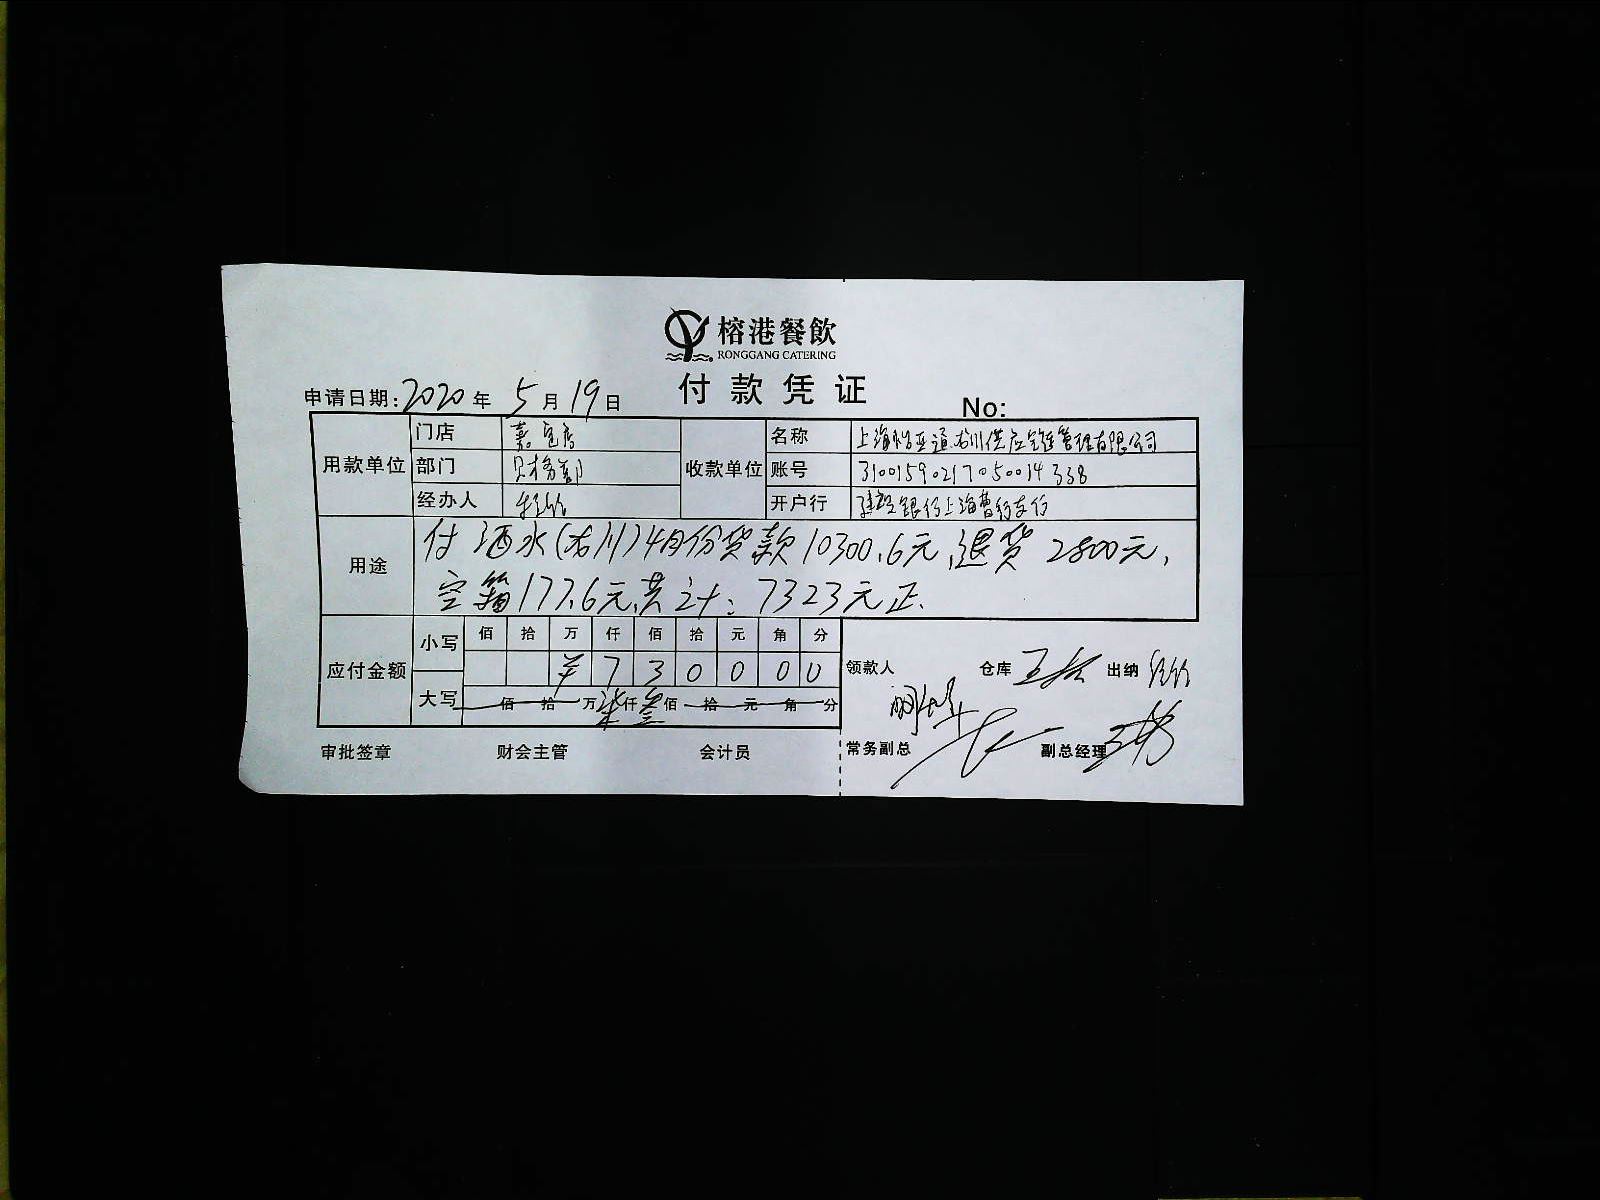 榕港餐飲
RONGGANG CATERING
付款凭证
申请日期:2020年5月19日
No:
用款单位
门店
部门 财务部
经办人
收款单位
名称 上海怡亚通龙川供应链管理有限公司
账号 31001590217050014338
开户行 建设银行上海曹杨支行
用途
付酒水(龙川)4月份货款10300.6元,退货2800元,
空箱177.6元,共计:7323元正.
应付金额
小写 佰 拾 万 仟 佰 拾 元 角 分
¥ 7 3 0 0 0 0
大写 佰 拾 万柒仟叁佰 拾 元 角 分
领款人 仓库 出纳
审批签章 财会主管 会计员 常务副总 副总经理